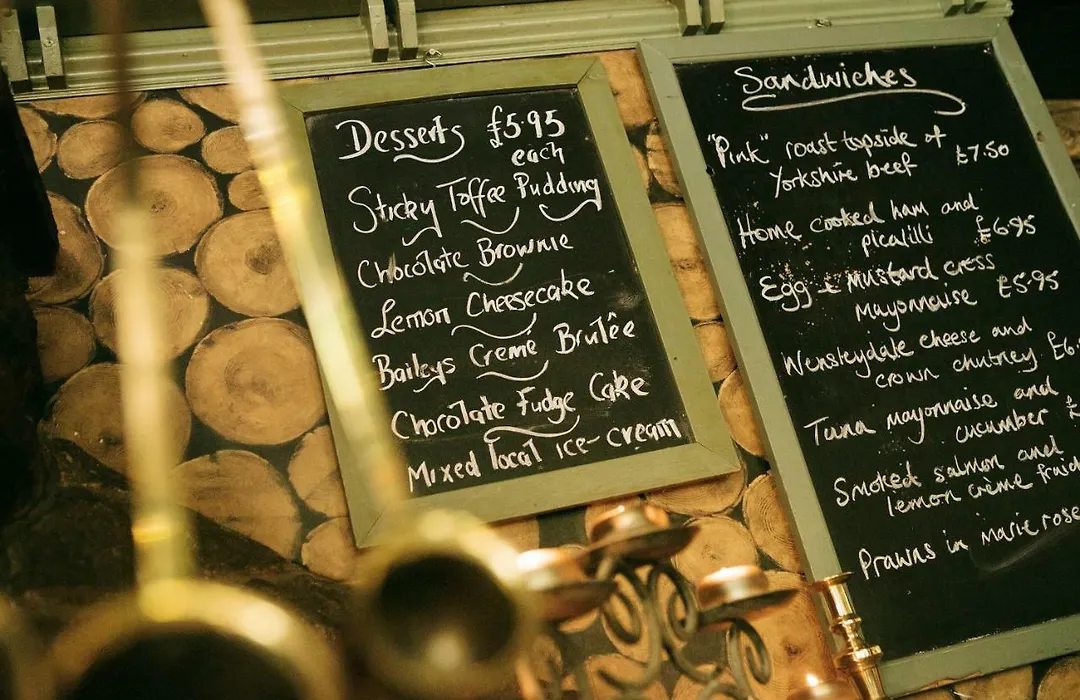 Desserts £5.95
each
Sticky Toffee Pudding
Chocolate Brownie
Lemon Cheesecake
Baileys Creme Brulêe
Chocolate Fudge Cake
Mixed local ice-cream
Sandwiches
"Pink" roast topside of
Yorkshire beef £7.50
Home cooked ham and
picalilli £6.95
Egg + mustard cress
Mayonnaise £5.95
Wensleydale cheese and
crown chutney £6.
Tuna mayonnaise and
cucumber £
Smoked salmon and
lemon crème
Prawns in marie rose